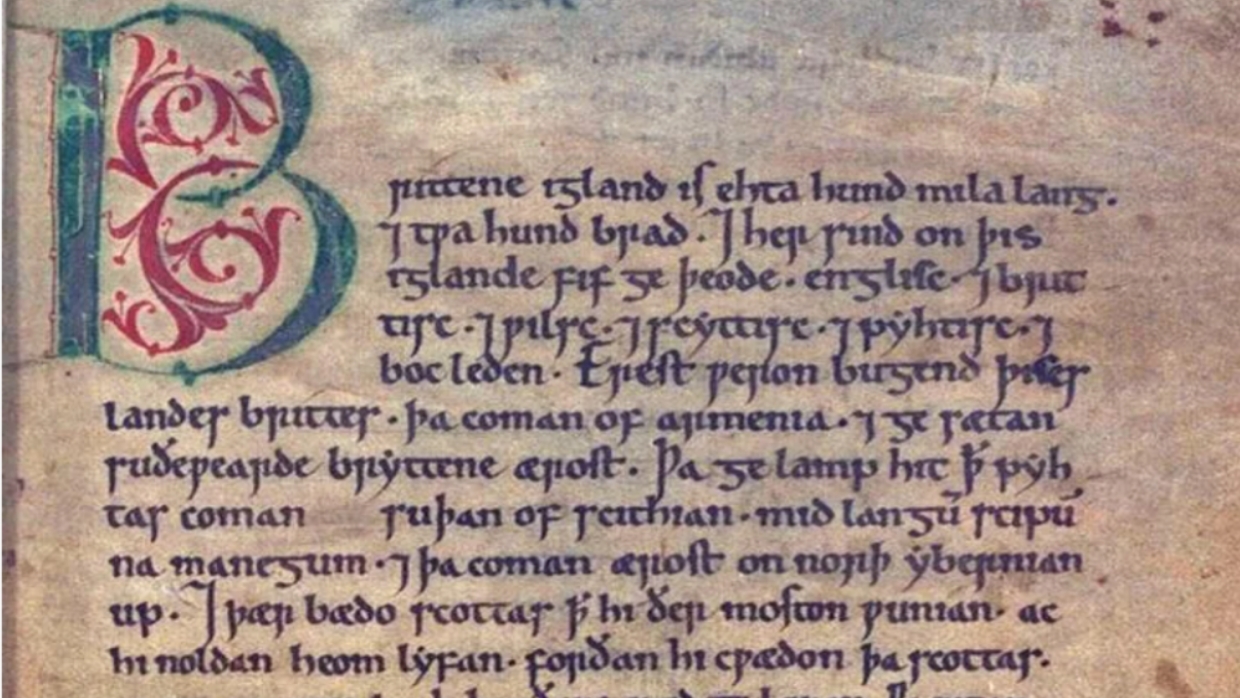 Brittene igland is ehta hund mila lang.
⁊ tƿa hund brad. ⁊ her sind on þis
iglande fif ge þeode. englisc. ⁊ brit
tisc. ⁊ ƿilsc. ⁊ scyttisc. ⁊ pyhtisc. ⁊
boc leden. Erest ƿeron bugend þises
landes brittes. þa coman of armenia. ⁊ ge sætan
suðeƿearde bryttene ærost. Þa ge lamp hit ꝥ pyh
tas coman suþan of scithian. mid langū scipū
na manegum. ⁊ þa coman ærost on norþ ybernian
up. ⁊ þær bædo scottas ꝥ hi ðer moston ƿunian. ac
hi noldan heom lyfan. forðan hi cƿædon þa scottas.